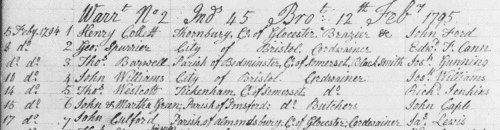 Warrt. No 2 Ind 45 Brot. 12th Feby 1795
5 Feby. 1794 1 Henry Collett Thornbury, C. of Glocester Brazier &c John Ford
8 do 2 Geo. Spurrier City of Bristol Cordwainer Edwd. T. Cann
do do 3 Thos. Barwell Parish of Bedminster, C. of Somerset, Blacksmith Jos. Gunning
10 do 4 John Williams City of Bristol. Cordwainer Jos. Williams
14 do 5 Thos. Westcott Tickenham, C. of Somerset do Richd. Jenkins
15 do 6 John & Martha Green; Parish of Butchers John Caple
17 do 7 John Parish of Almondsbury C. of Glocester; Cordwainer Jas. Lewis